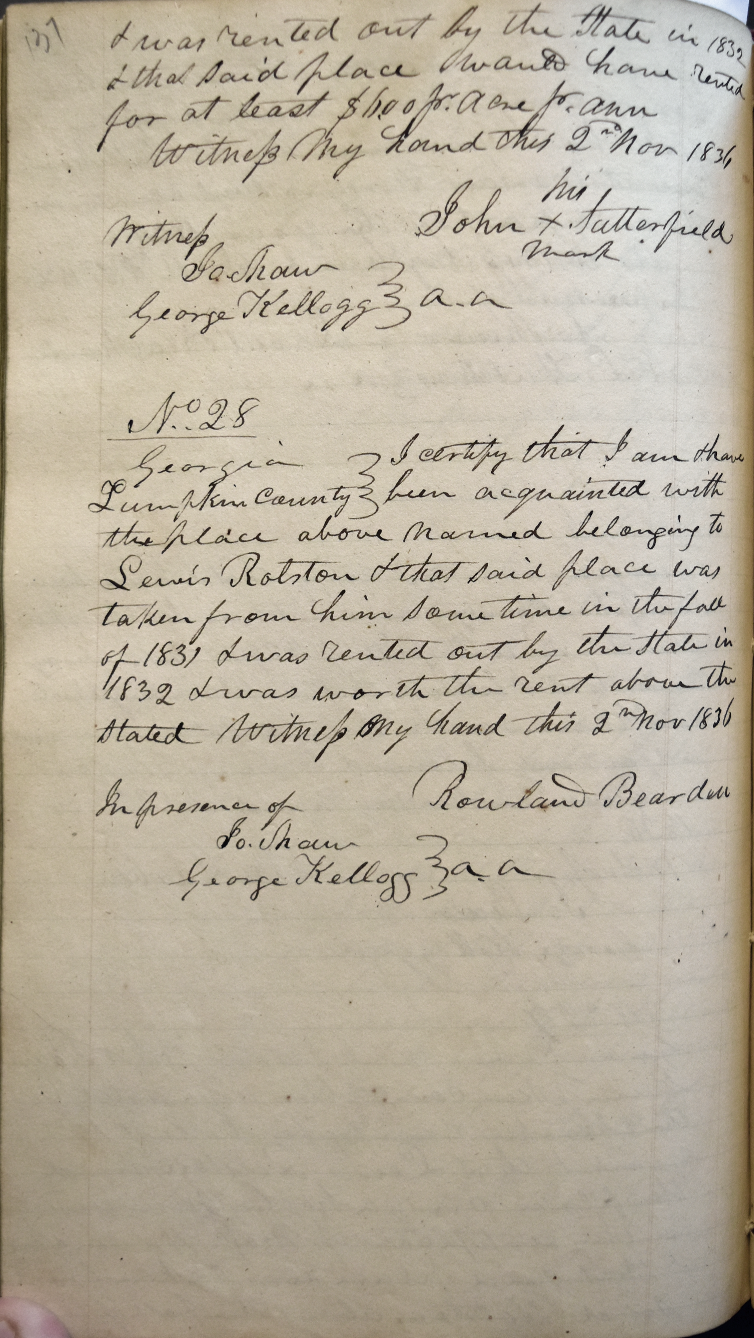 137
& was rented out by the State in 1832
& that said place would have rented
for at least $600 pr. Acre pr. ann
Witness My hand this 2nd Nov 1836
his
John x Satterfield
mark
Witness
Jo. Shaw
George Kellogg } a. a
No. 28
Georgia } I certify that I am & have
Lumpkin County } been acquainted with
the place above named belonging to
Lewis Rolston & that said place was
taken from him some time in the fall
of 1831 & was rented out by the State in
1832 & was worth the rent above the
stated Witness My hand this 2nd Nov 1836
In presence of Rowland Bearden
Jo. Shaw
George Kellogg } a. a